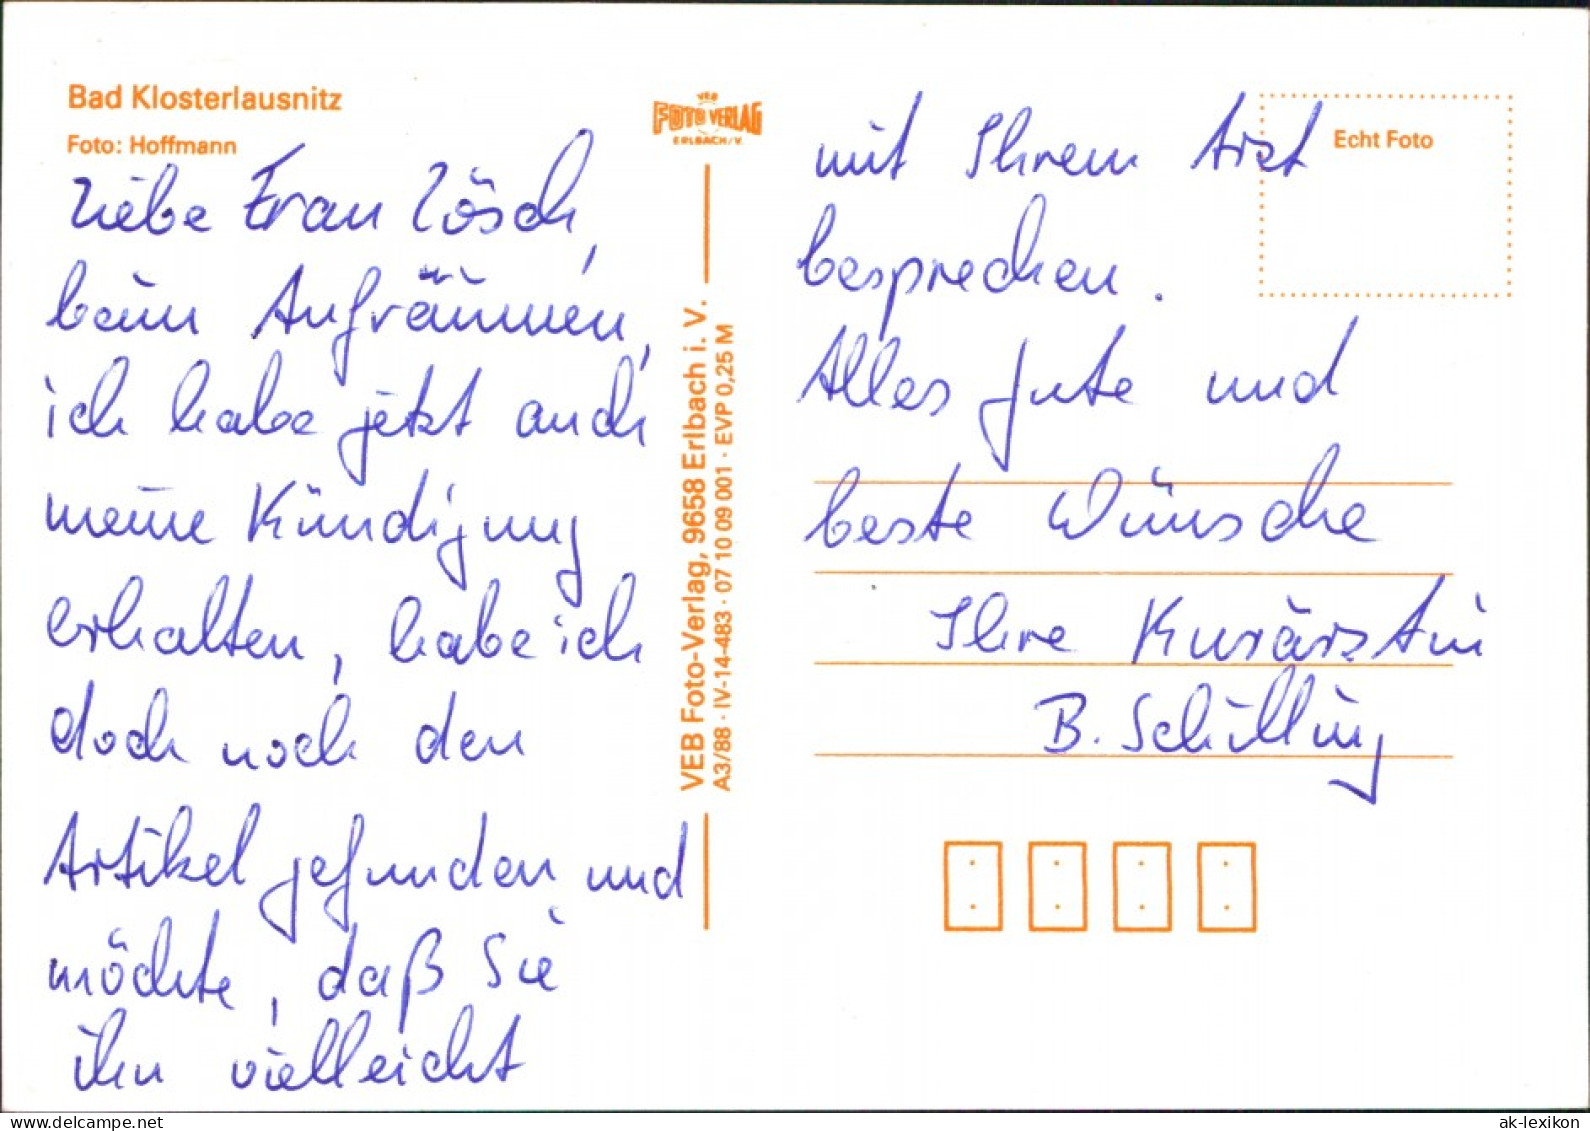 Bad Klosterlausnitz
Foto: Hoffmann
Liebe Frau Lösch,
beim Aufräumen,
ich habe jetzt auch
meine Kündigung
erhalten, habe ich
doch noch den
Artikel gefunden und
möchte, daß Sie
ihn vielleicht
VEB
FOTO VERLAG
ERLBACH/V.
VEB Foto-Verlag, 9658 Erlbach i. V.
A3/88 · IV-14-483 · 07 10 09 001 · EVP 0,25 M
mit Ihrem Arzt
besprechen.
Alles Gute und
beste Wünsche
Ihre Kurärztin
B. Schilling
Echt Foto
www.delcampe.net
ak-lexikon